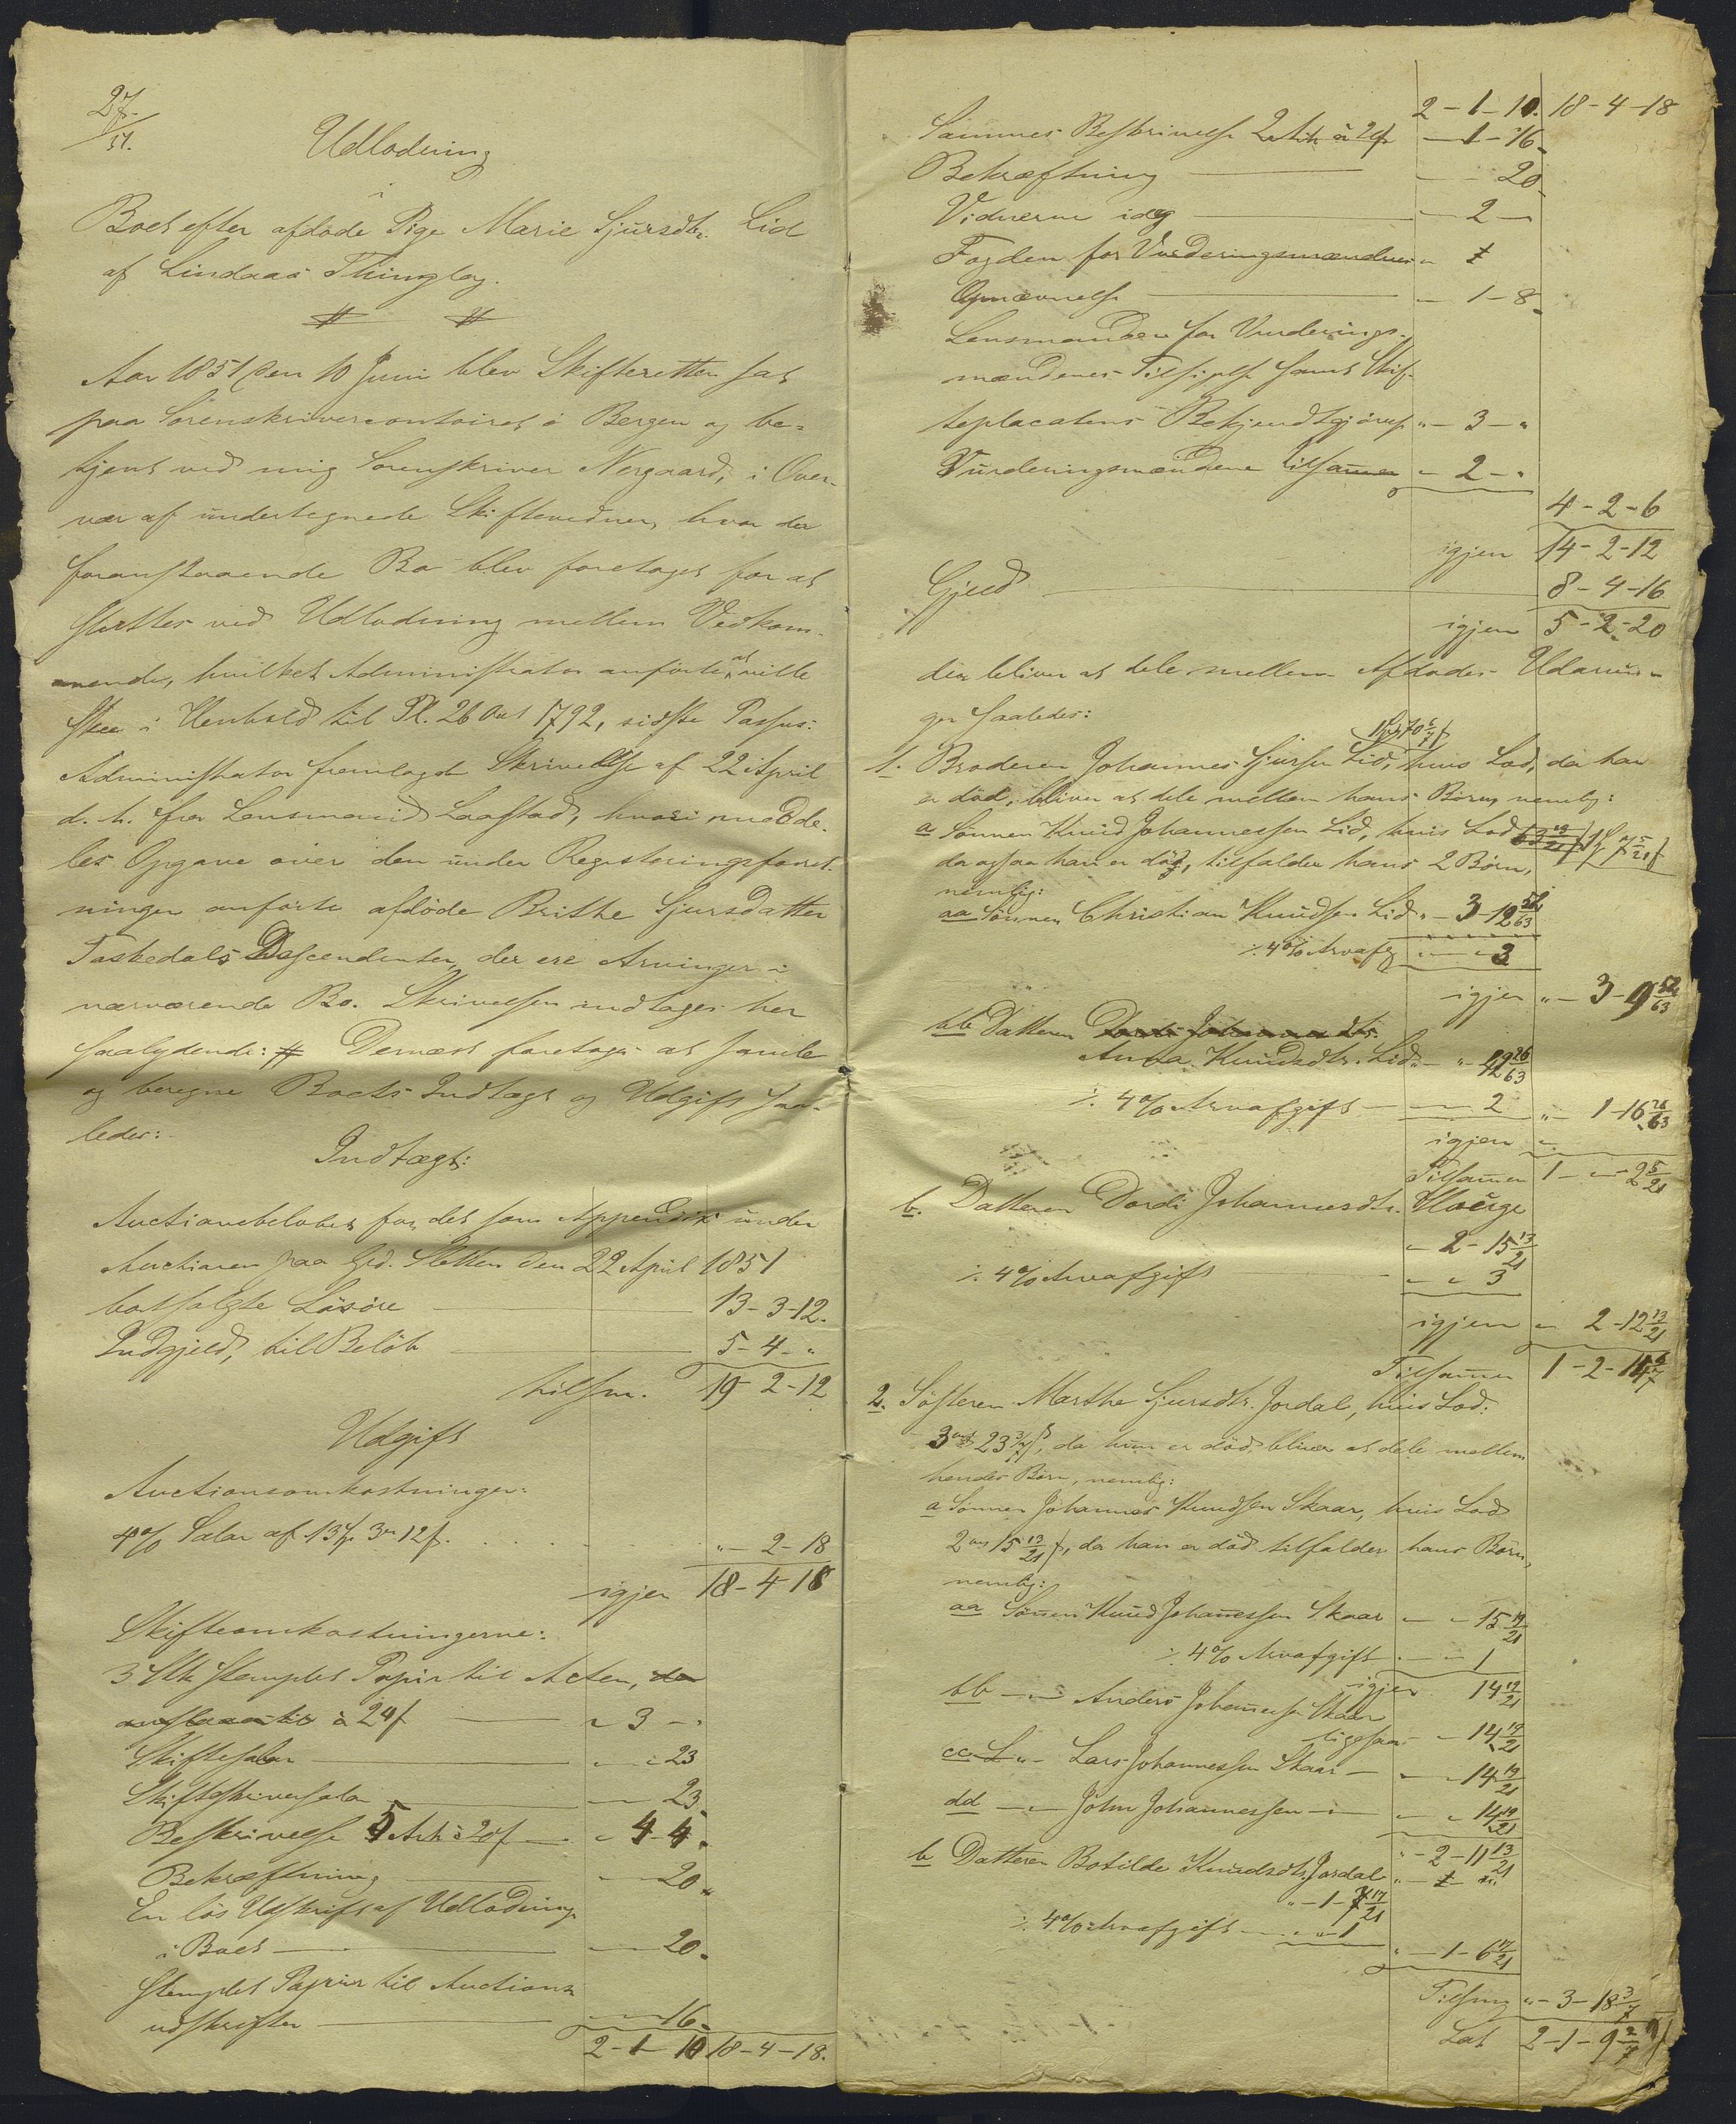 27/51.
Udlodning
i
Boet efter afdöde Pige Marie Sjursdtr. Lid
af Lindaas Thinglag.
Aar 1851 den 10 Juni blev Skifteretten sat
paa Sorenskrivercontoiret i Bergen og be-
tjent ved mig Sorenskriver Norgaard, i Over-
vær af undertegnede Skiftevidner, hvor da
foranstaaende Bo blev foretaget for at
sluttes ved Udlodning mellem Vedkom-
mende, hvilket Administrator anförte at ville
skee i Henhold til Pl. 26 Oct 1792, sidste Passus:
Administrator fremlagde Skrivelse af 22 April
d. A. fra Lensmand Laastad, hvori medde-
les Opgave over den under Registreringsforret-
ningen anförte afdöde Brithe Sjursdatter
Taskedals Descendenter, der ere Arvinger i
nærværende Bo. Skrivelsen indtages her
saalydende: # Dernæst foretoges at samle
og beregne Boets Indtægt og Udgift saa-
ledes:
Indtægt:
Auctionsbelöbet for det som Appendix under
Auctionen paa Gd. Sletten den 22 April 1851
bortsolgte Lösöre 13-3-12.
Indgjeld, til Belöb 5-4-"
tilsm. 19-2-12
Udgift
Auctionsomkostninger:
4% Salær af 13 3 12 "-2-18
igjen 18-4-18
Skifteomkostningerne:
3 Ark stemplet Papir til Acten,
à 24 " 3-"
Skiftesalær " " 23
Skifteskriversalær 23.
Beskrivelse 5 Ark à 20 " 4-4.
Bekræftning 20
En lös Udskrift af Udlodning
i Boet 20.
Stemplet Papir til Auctions
udskrifter 16.
2-1-10 18-4-18.
2-1-10. 18-4-18
Sammes Beskrivelse 2 Ark à 20 -1-16
Bekræftning 20
Vidnerne idag -2-
Fogden for Vurderingsmændenes
Opnævnelse -1-8
Lensmanden for Vurderings-
mændenes Tilsigelse samt Skif-
teplacatens Bekjendtgjörelse "-3-"
Vurderingsmændene tilsammen -2-"
4-2-6
igjen 14-2-12
Gjeld 8-4-16
igjen 5-2-20
der bliver at dele mellem Afdödes Udarvin-
ger saaledes:
1. Broderen Johannes Sjursen Lid, hvis Lod, da han
er död, bliver at dele mellem hans Börn, nemlig:
a Sönnen Knud Johannessen Lid, hvis Lod
da ogsaa han er död, tilfalder hans 2 Börn,
nemlig:
aa Sönnen Christian Knudsen Lid "-3-12 52/63
÷ 4% Arvafg 3
igjen "-3-9 52/63
bb Datteren
Anna Knudsdtr. Lid
÷ 4% Arvafgift 2 "-1-16 26/63
igjen
Tilsammen 1-"-2 5/21
b. Datteren Dordi Johannesdtr.
"-2-15 13/21
÷ 4% Arvafgift 3
igjen " 2-12 13/21
Tilsammen
2. Sösteren Marthe Sjursdtr. Jordal, hvis Lod.
3 23 3/7, da hun er död, bliver at dele mellem
hendes Börn, nemlig:
a Sönnen Johannes Knudsen Skaar, hvis Lod
2 15 13/21, da han er död tilfalder hans Börn,
nemlig:
aa Sönnen Knud Johannessen Skaar 15 19/21
÷ 4% Arvafgift 1
igjen 14 19/21
bb Anders Johannessen Skaar
ligesaa 14 19/21
cc Lars Johannessen Skaar 14 19/21
dd John Johannessen 14 19/21
"-2-11 13/21
b Datteren Botilde Knudsdtr. Jordal
"-1-7 17/21
÷ 4% Arvafgift 1
"-1-6 17/21
Tilsmn "-3-18 3/7
Lat 2-1-9 2/7